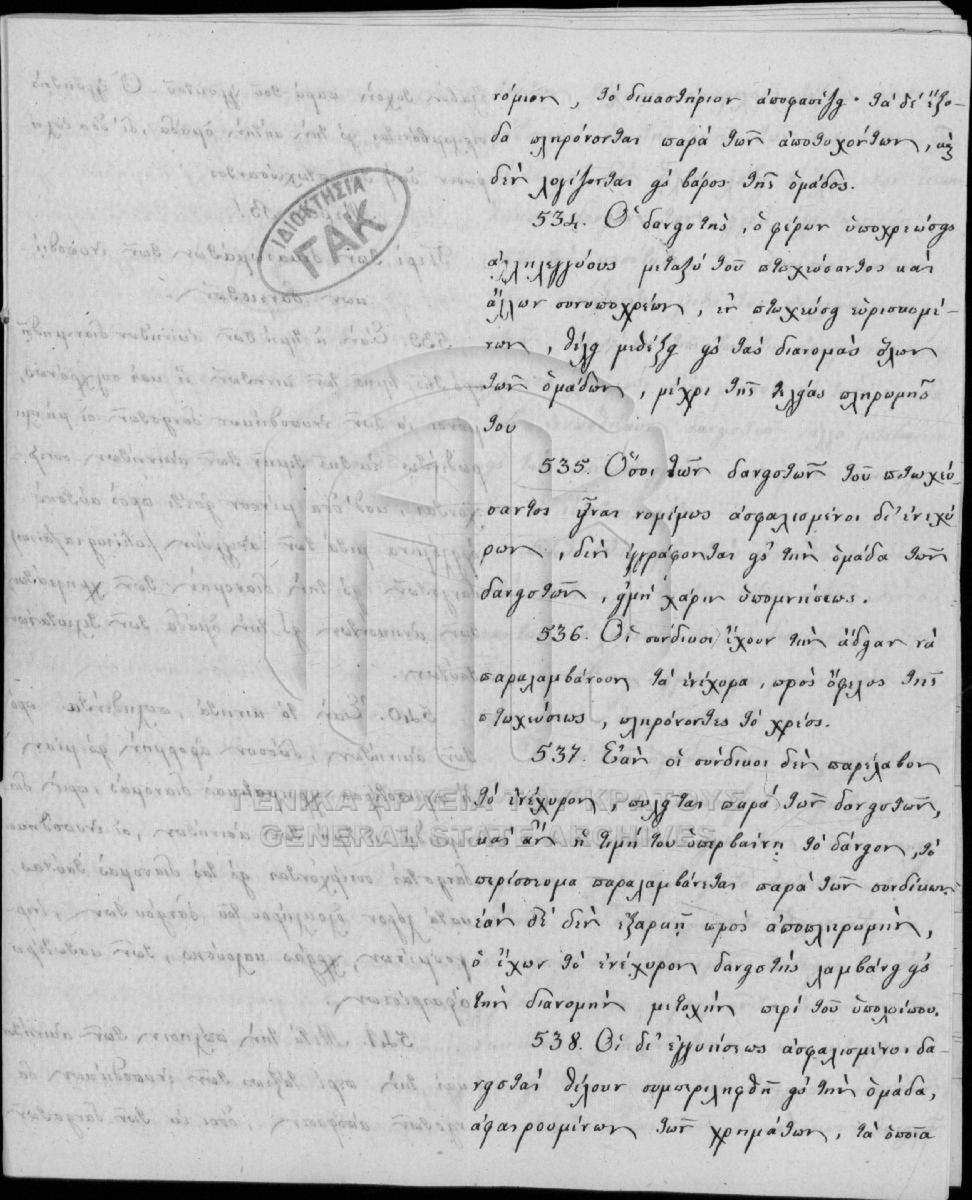 νόμιον, τὸ δικαστήριον ἀποφασίζει· τὰ δὲ ἔξο-
δα πληρόνονται παρὰ τῶν ἀποτυχόντων, καὶ
δὲν λογίζονται εἰς βάρος τῆς ὁμάδος.
534. Ὁ δανειστὴς, ὁ φέρων ὑποχρεώσεις
ἀλληλεγγύους μεταξὺ τοῦ πτωχεύσαντος καὶ
ἄλλων συνυποχρέων, ἐν πτωχεύσει εὑρισκομέ-
νων, θέλει μεθέξει εἰς τὰς διανομὰς ὅλων
τῶν ὁμάδων, μέχρι τῆς τελείας πληρωμῆς
του
535. Ὅσοι τῶν δανειστῶν τοῦ πτωχεύ-
σαντος ἦναι νομίμως ἀσφαλισμένοι δι' ἐνεχύ-
ρων, δὲν ἐγγράφονται εἰς τὴν ὁμάδα τῶν
δανειστῶν, εἰμὴ χάριν ὑπομνήσεως.
536. Οἱ σύνδικοι ἔχουν τὴν ἄδειαν νὰ
παραλαμβάνουν τὰ ἐνέχυρα, πρὸς ὄφελος τῆς
πτωχεύσεως, πληρόνοντες τὸ χρέος.
537. Ἐὰν οἱ σύνδικοι δὲν παρέλαβον
τὸ ἐνέχυρον, πωλεῖται παρὰ τῶν δανειστῶν,
καὶ ἂν ἡ τιμή του ὑπερβαίνῃ τὸ δάνειον, τὸ
περίσσευμα παραλαμβάνεται παρὰ τῶν συνδίκων·
ἐὰν δὲ δὲν ἐξαρκῇ πρὸς ἀποπληρωμὴν,
ὁ ἔχων τὸ ἐνέχυρον δανειστὴς λαμβάνει εἰς
τὴν διανομὴν μετοχὴν περὶ τοῦ ὑπολοίπου.
538. Οἱ δι' ἐγγυήσεως ἀσφαλισμένοι δα-
νεισταὶ θέλουν συμπεριληφθῆ εἰς τὴν ὁμάδα,
ἀφαιρουμένων τῶν χρημάτων, τὰ ὁποῖα
ΙΔΙΟΚΤΗΣΙΑ
ΓΑΚ
ΓΕΝΙΚΑ ΑΡΧΕΙΑ ΤΟΥ ΚΡΑΤΟΥΣ
GENERAL STATE ARCHIVES